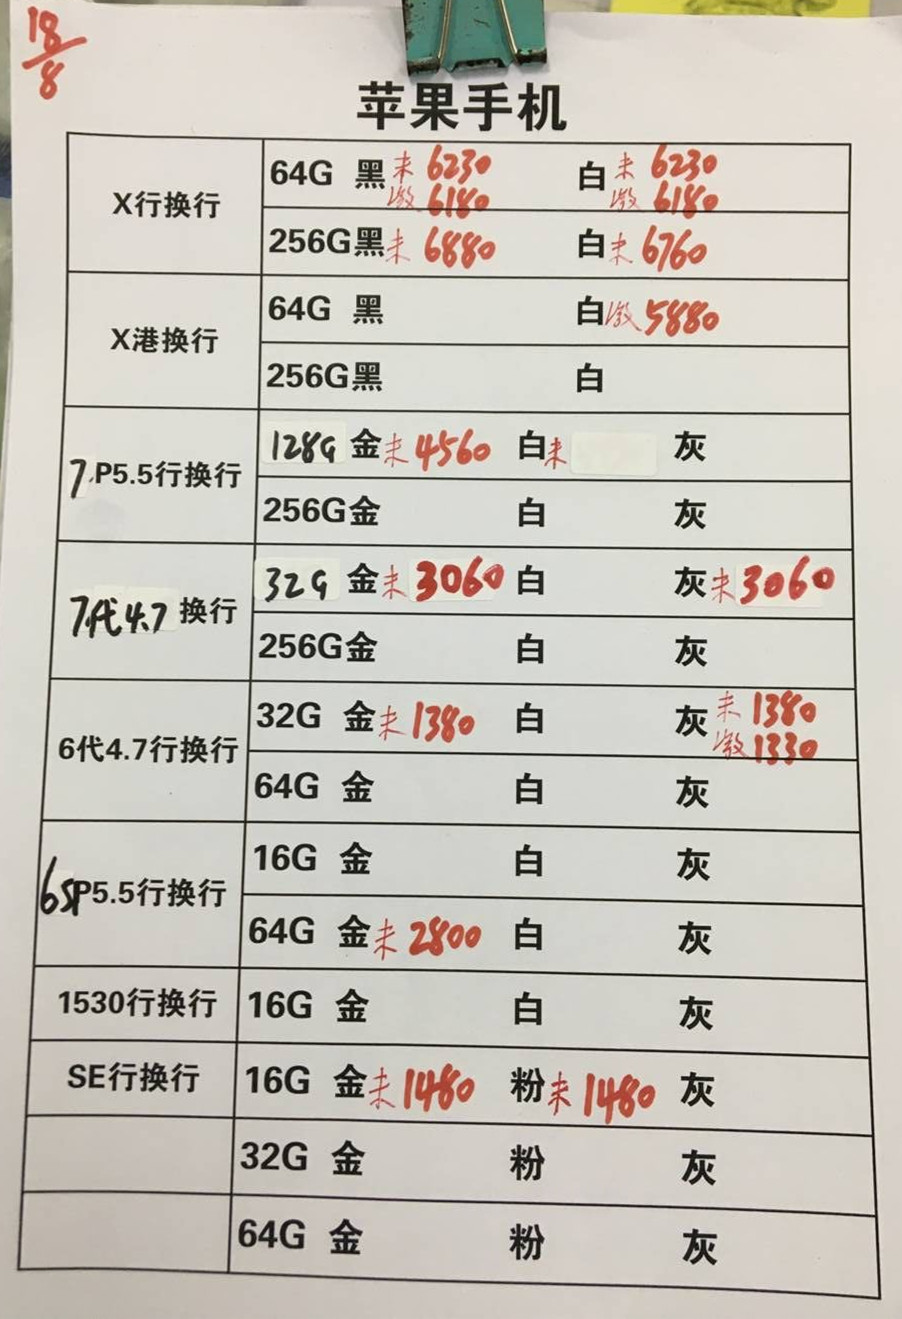 18/8
苹果手机
X行换行
64G 黑 未 6230 白 未 6230
激 6180 激 6180
256G黑 未 6880 白 未 6760
X港换行
64G 黑 白 激 5880
256G黑 白
7 P5.5行换行
128G 金 未 4560 白 未 灰
256G金 白 灰
7代4.7 换行
32G 金 未 3060 白 灰 未 3060
256G金 白 灰
6代4.7行换行
32G 金 未 1380 白 灰 未 1380
激 1330
64G 金 白 灰
6SP5.5行换行
16G 金 白 灰
64G 金 未 2800 白 灰
1530行换行 16G 金 白 灰
SE行换行 16G 金 未 1480 粉 未 1480 灰
32G 金 粉 灰
64G 金 粉 灰